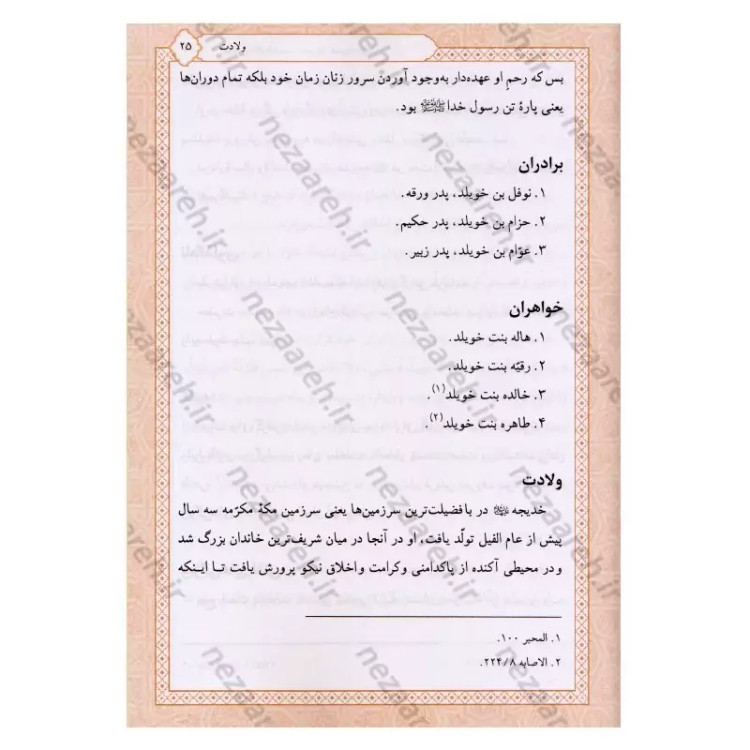 ولادت ۲۵
بس که رحم او عهده‌دار به‌وجود آوردن سرور زنان زمان خود بلکه تمام دوران‌ها
یعنی پارهٔ تن رسول خدا ﷺ بود.
برادران
۱. نوفل بن خویلد، پدر ورقه.
۲. حزام بن خویلد، پدر حکیم.
۳. عوّام بن خویلد، پدر زبیر.
خواهران
۱. هاله بنت خویلد.
۲. رقیّه بنت خویلد.
۳. خالده بنت خویلد(۱).
۴. طاهره بنت خویلد(۲).
ولادت
خدیجه در بافضیلت‌ترین سرزمین‌ها یعنی سرزمین مکهٔ مکرّمه سه سال
پیش از عام الفیل تولّد یافت، او در آنجا در میان شریف‌ترین خاندان بزرگ شد
و در محیطی آکنده از پاکدامنی وکرامت واخلاق نیکو پرورش یافت تا اینکه
۱. المحبر ۱۰۰.
۲. الاصابه ۲۲۴/۸.
nezaareh.ir